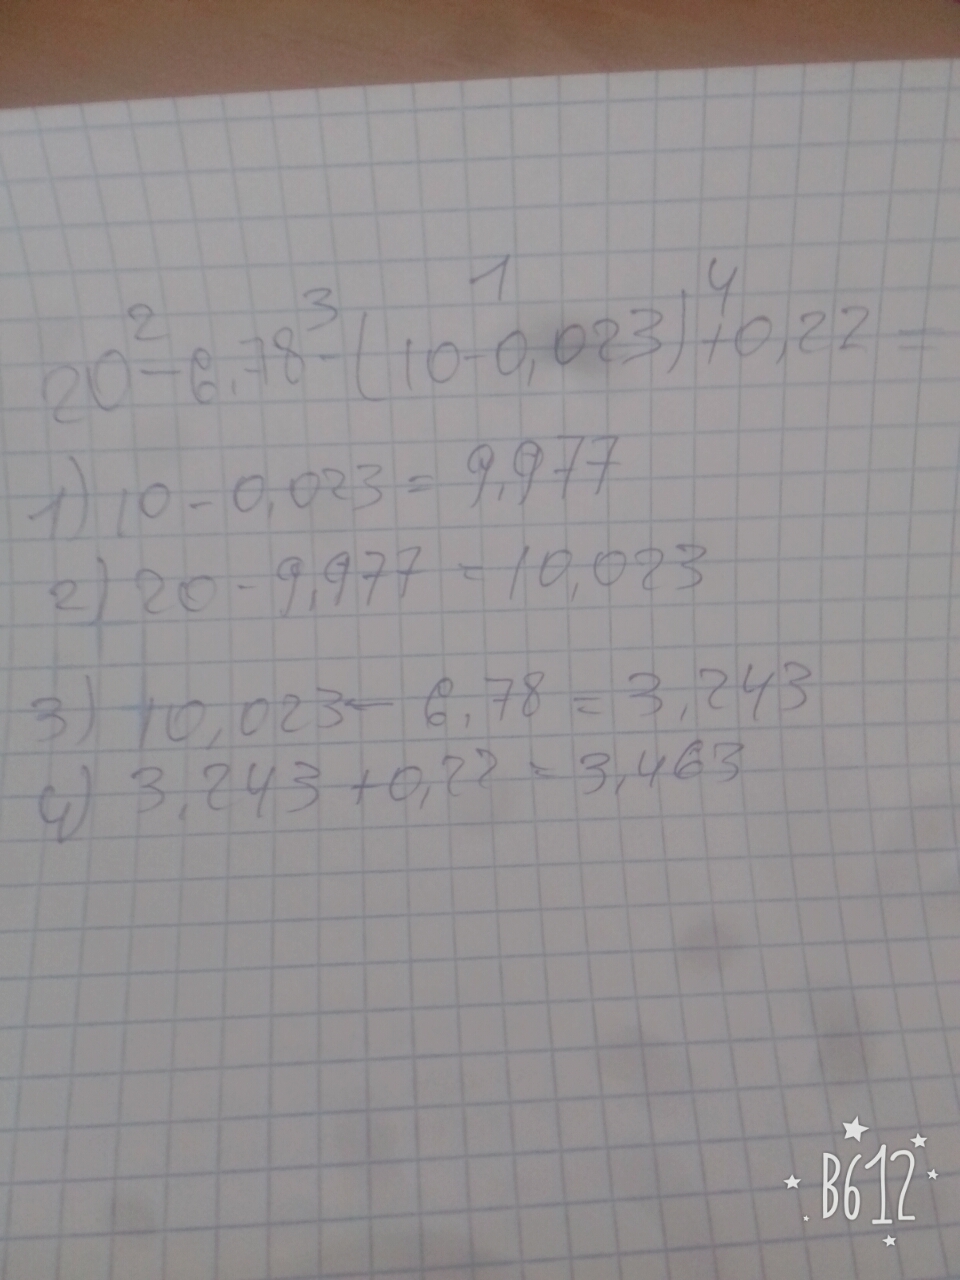 2 3 1 4
20-6,78-(10-0,023)+0,22=
1) 10-0,023=9,977
2) 20-9,977=10,023
3) 10,023-6,78=3,243
4) 3,243+0,22=3,463
B612